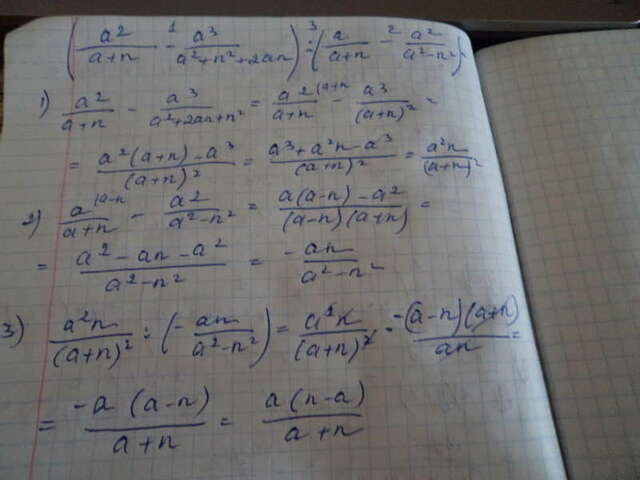 (a²/(a+n) -¹ a³/(a²+n²+2an)) :³ (a/(a+n) -² a²/(a²-n²))
1) a²/(a+n) - a³/(a²+2an+n²) = a²|a+n/(a+n) - a³/(a+n)² =
= (a²(a+n)-a³)/(a+n)² = (a³+a²n-a³)/(a+n)² = a²n/(a+n)²
2) a|a-n/(a+n) - a²/(a²-n²) = (a(a-n)-a²)/((a-n)(a+n)) =
= (a²-an-a²)/(a²-n²) = -an/(a²-n²)
3) a²n/(a+n)² : (-an/(a²-n²)) = a²n/(a+n)² · -(a-n)(a+n)/an =
= -a(a-n)/(a+n) = a(n-a)/(a+n)